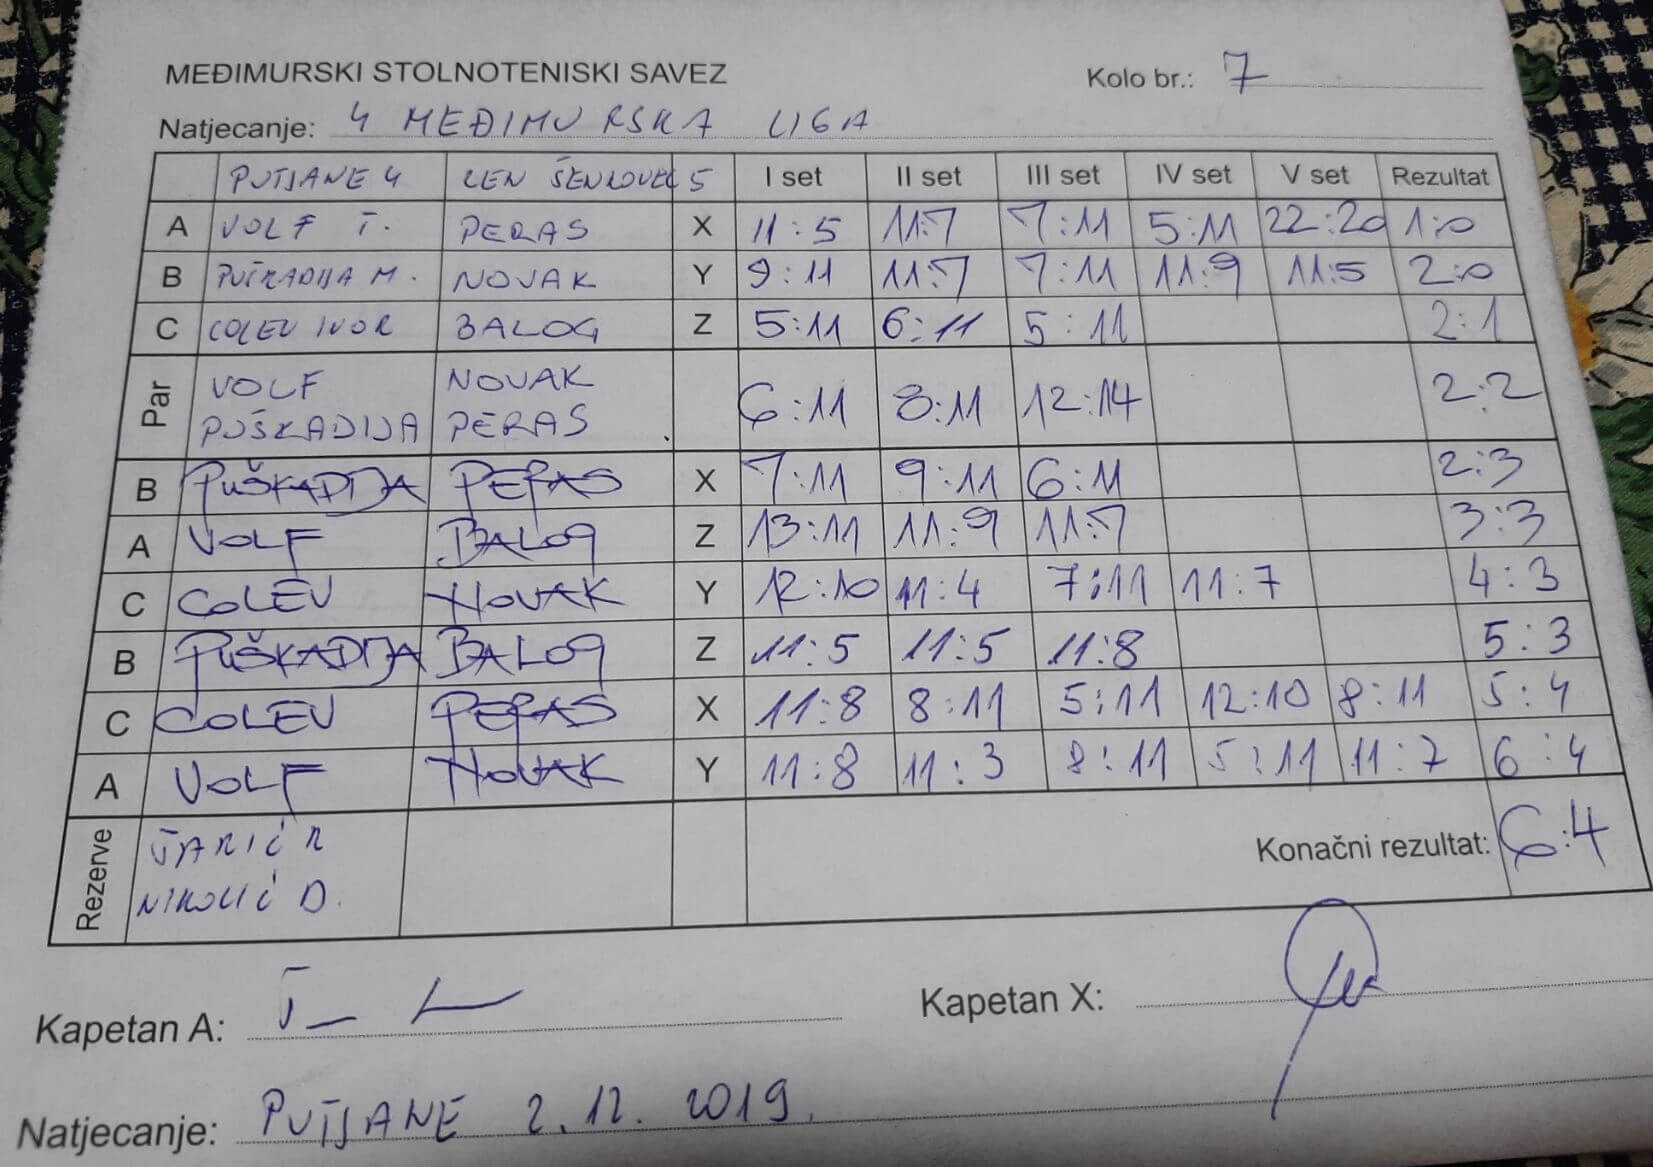 MEĐIMURSKI STOLNOTENISKI SAVEZ
Kolo br.: 7
Natjecanje: 4 MEĐIMURSKA LIGA
PUTJANE 4 5 I set II set III set IV set V set Rezultat
A VOLF T. PERAS X 11:5 11:7 7:11 5:11 22:20 1:0
B PUŠKADIJA M. NOVAK Y 9:11 11:7 7:11 11:9 11:5 2:0
C COLEV IVOR BALOG Z 5:11 6:11 5:11 2:1
Par VOLF NOVAK 6:11 8:11 12:14 2:2
PUŠKADIJA PERAS
B PUŠKADIJA PERAS X 7:11 9:11 6:11 2:3
A VOLF BALOG Z 13:11 11:9 11:7 3:3
C COLEV NOVAK Y 12:10 11:4 7:11 11:7 4:3
B PUŠKADIJA BALOG Z 11:5 11:5 11:8 5:3
C COLEV PERAS X 11:8 8:11 5:11 12:10 8:11 5:4
A VOLF NOVAK Y 11:8 11:3 8:11 5:11 11:7 6:4
Rezerve
NIKOLIĆ D.
Konačni rezultat: 6:4
Kapetan A:
Kapetan X:
Natjecanje: PUTJANE 2.12.2019.